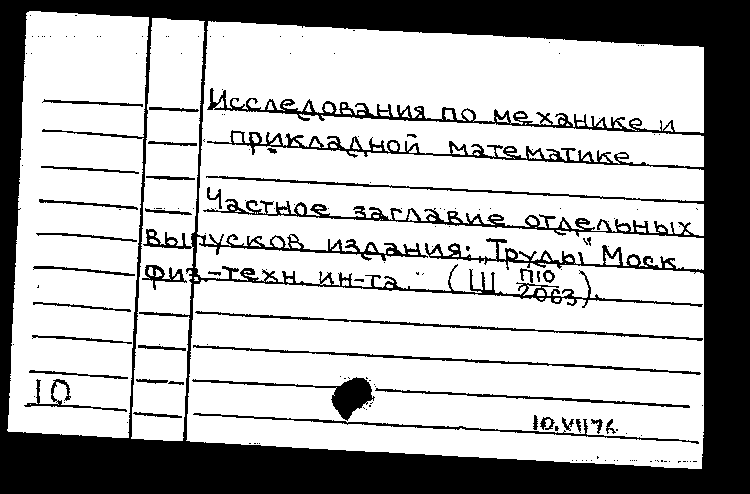 Исследования по механике и
прикладной математике.
Частное заглавие отдельных
выпусков издания: „Труды" Моск.
физ-техн. ин-та. (Ш П10/2063).
10
10.VII 76